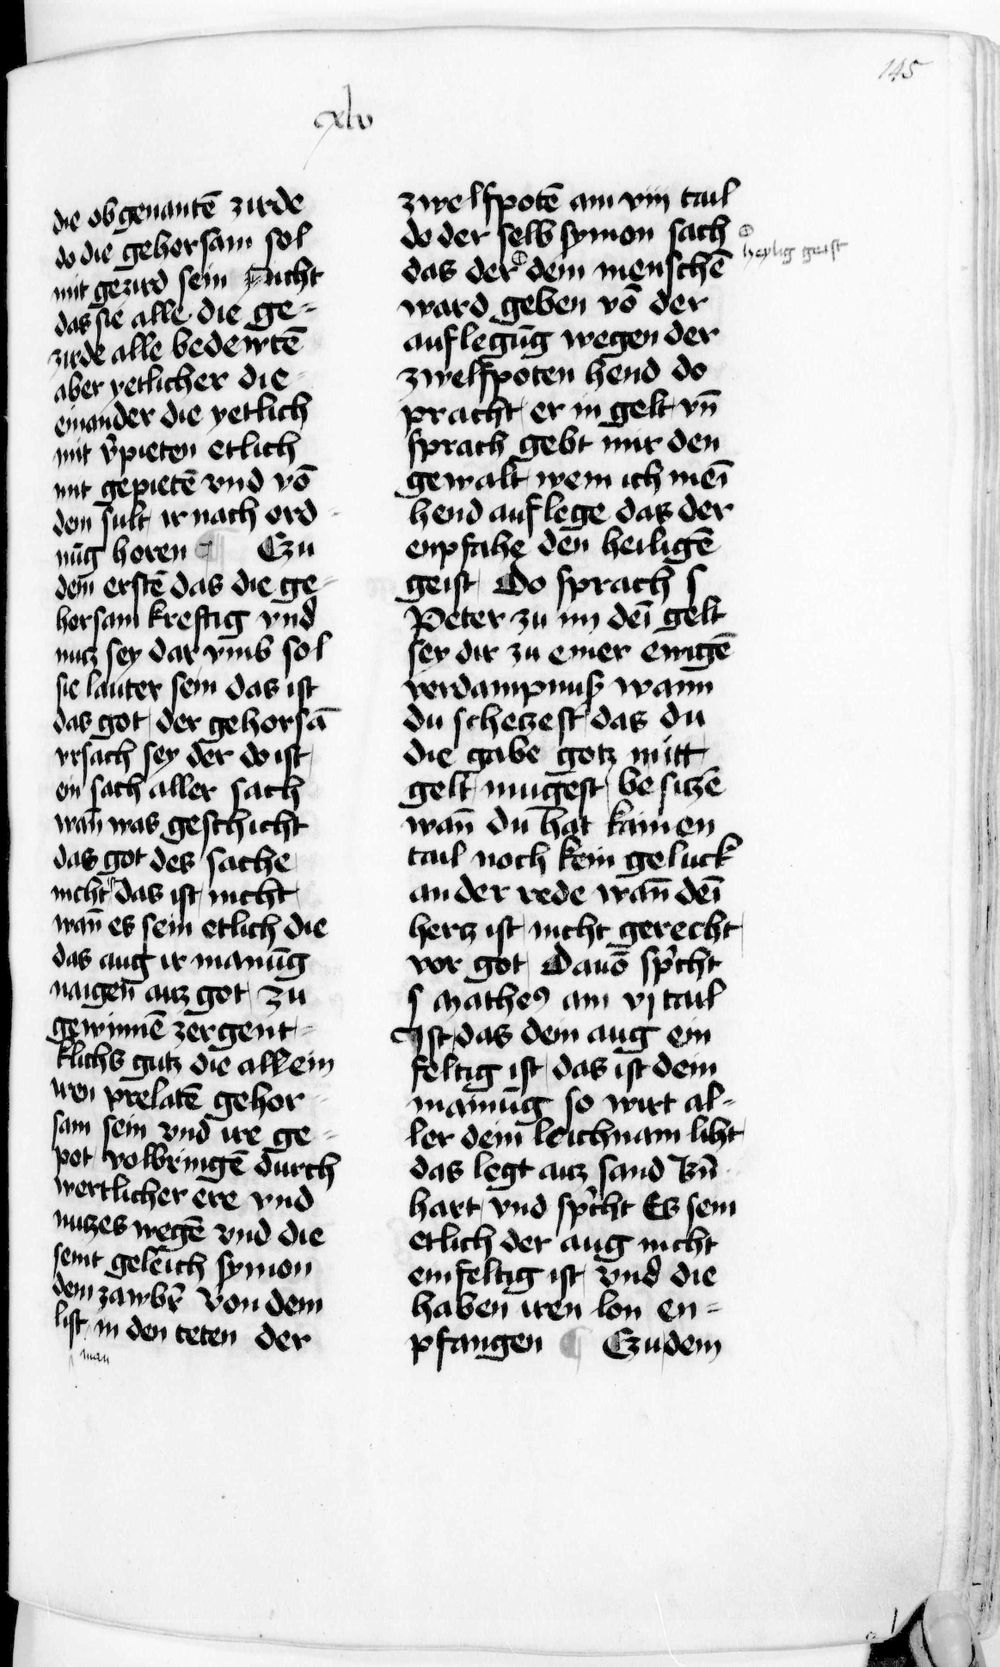 145
xlv
die obgenantē zirde
do die gehorsam sol
mit gezird sein nicht
das sie alle die ge=
zirde alle bedewtē
aber yetlicher die=
einander die yetlich
mit v̄pieten etlich
mit gepietē vnd vō
dem sult ir nach ord=
nūg horen ¶ Czu
dem̄ erstē das die ge=
horsam kreftig vnd
nutz sey dar vmb sol
sie lauter sein das ist
das got der gehorsā
vrsach sey der do ist
ein sach aller sach
wan̄ was geschicht
das got des sache
nicht das ist nicht
wan̄ es sein etlich die
das aug ir manūg
naigen̄ auz got zu
gewinnē zergent=
klichs gutz die allein
iren prelatē gehor=
sam sein vnd ire ge=
pot volbringē durch
wertlicher ere vnd
nutzes wegē vnd die
seint geleich symon
dem zawbr̄ von dem
list in den teten der
man
zwelfpotē am viij tail
do der selb symon sach
heylig geist
das der dem menschē
ward geben vō der
auflegūg wegen der
zwelfpoten hend do
pracht er in gelt vn̄
sprach gebt mir den
gewalt wem ich mei̅
hend auflege das der
enpfahe den heiligē
geist Do sprach s
Peter zu im dei̅ gelt
sey dir zu einer ewigē
verdampnuß wann
du schetzest das du
die gabe gotz mitt
gelt mugest besitzē
wan̄ du hat kainen
tail noch kein geluck
an der rede wan̄ dei̅
hertz ist nicht gerecht
vor got Dauō sp̄cht
s Matheꝰ am vj tail
Ist das dein aug ein
feltig ist das ist dein
mainūg so wirt al=
ler dein̄ leichnam liht
das legt auz sand Bn̄
hart vnd sp̄cht Es sein
etlich der aug nicht
einfeltig ist vnd die
haben iren lon en=
pfangen ¶ Czu dem